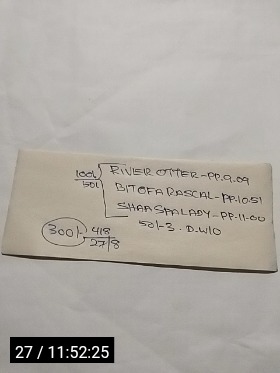 100/- RIVER OTTER-PP.9.09
50/- BITOFARASCAL-PP.10.51
SHAASPALADY-PP.11-00
50/-3.D.W/O
300/- 418
27/8
27 / 11:52:25